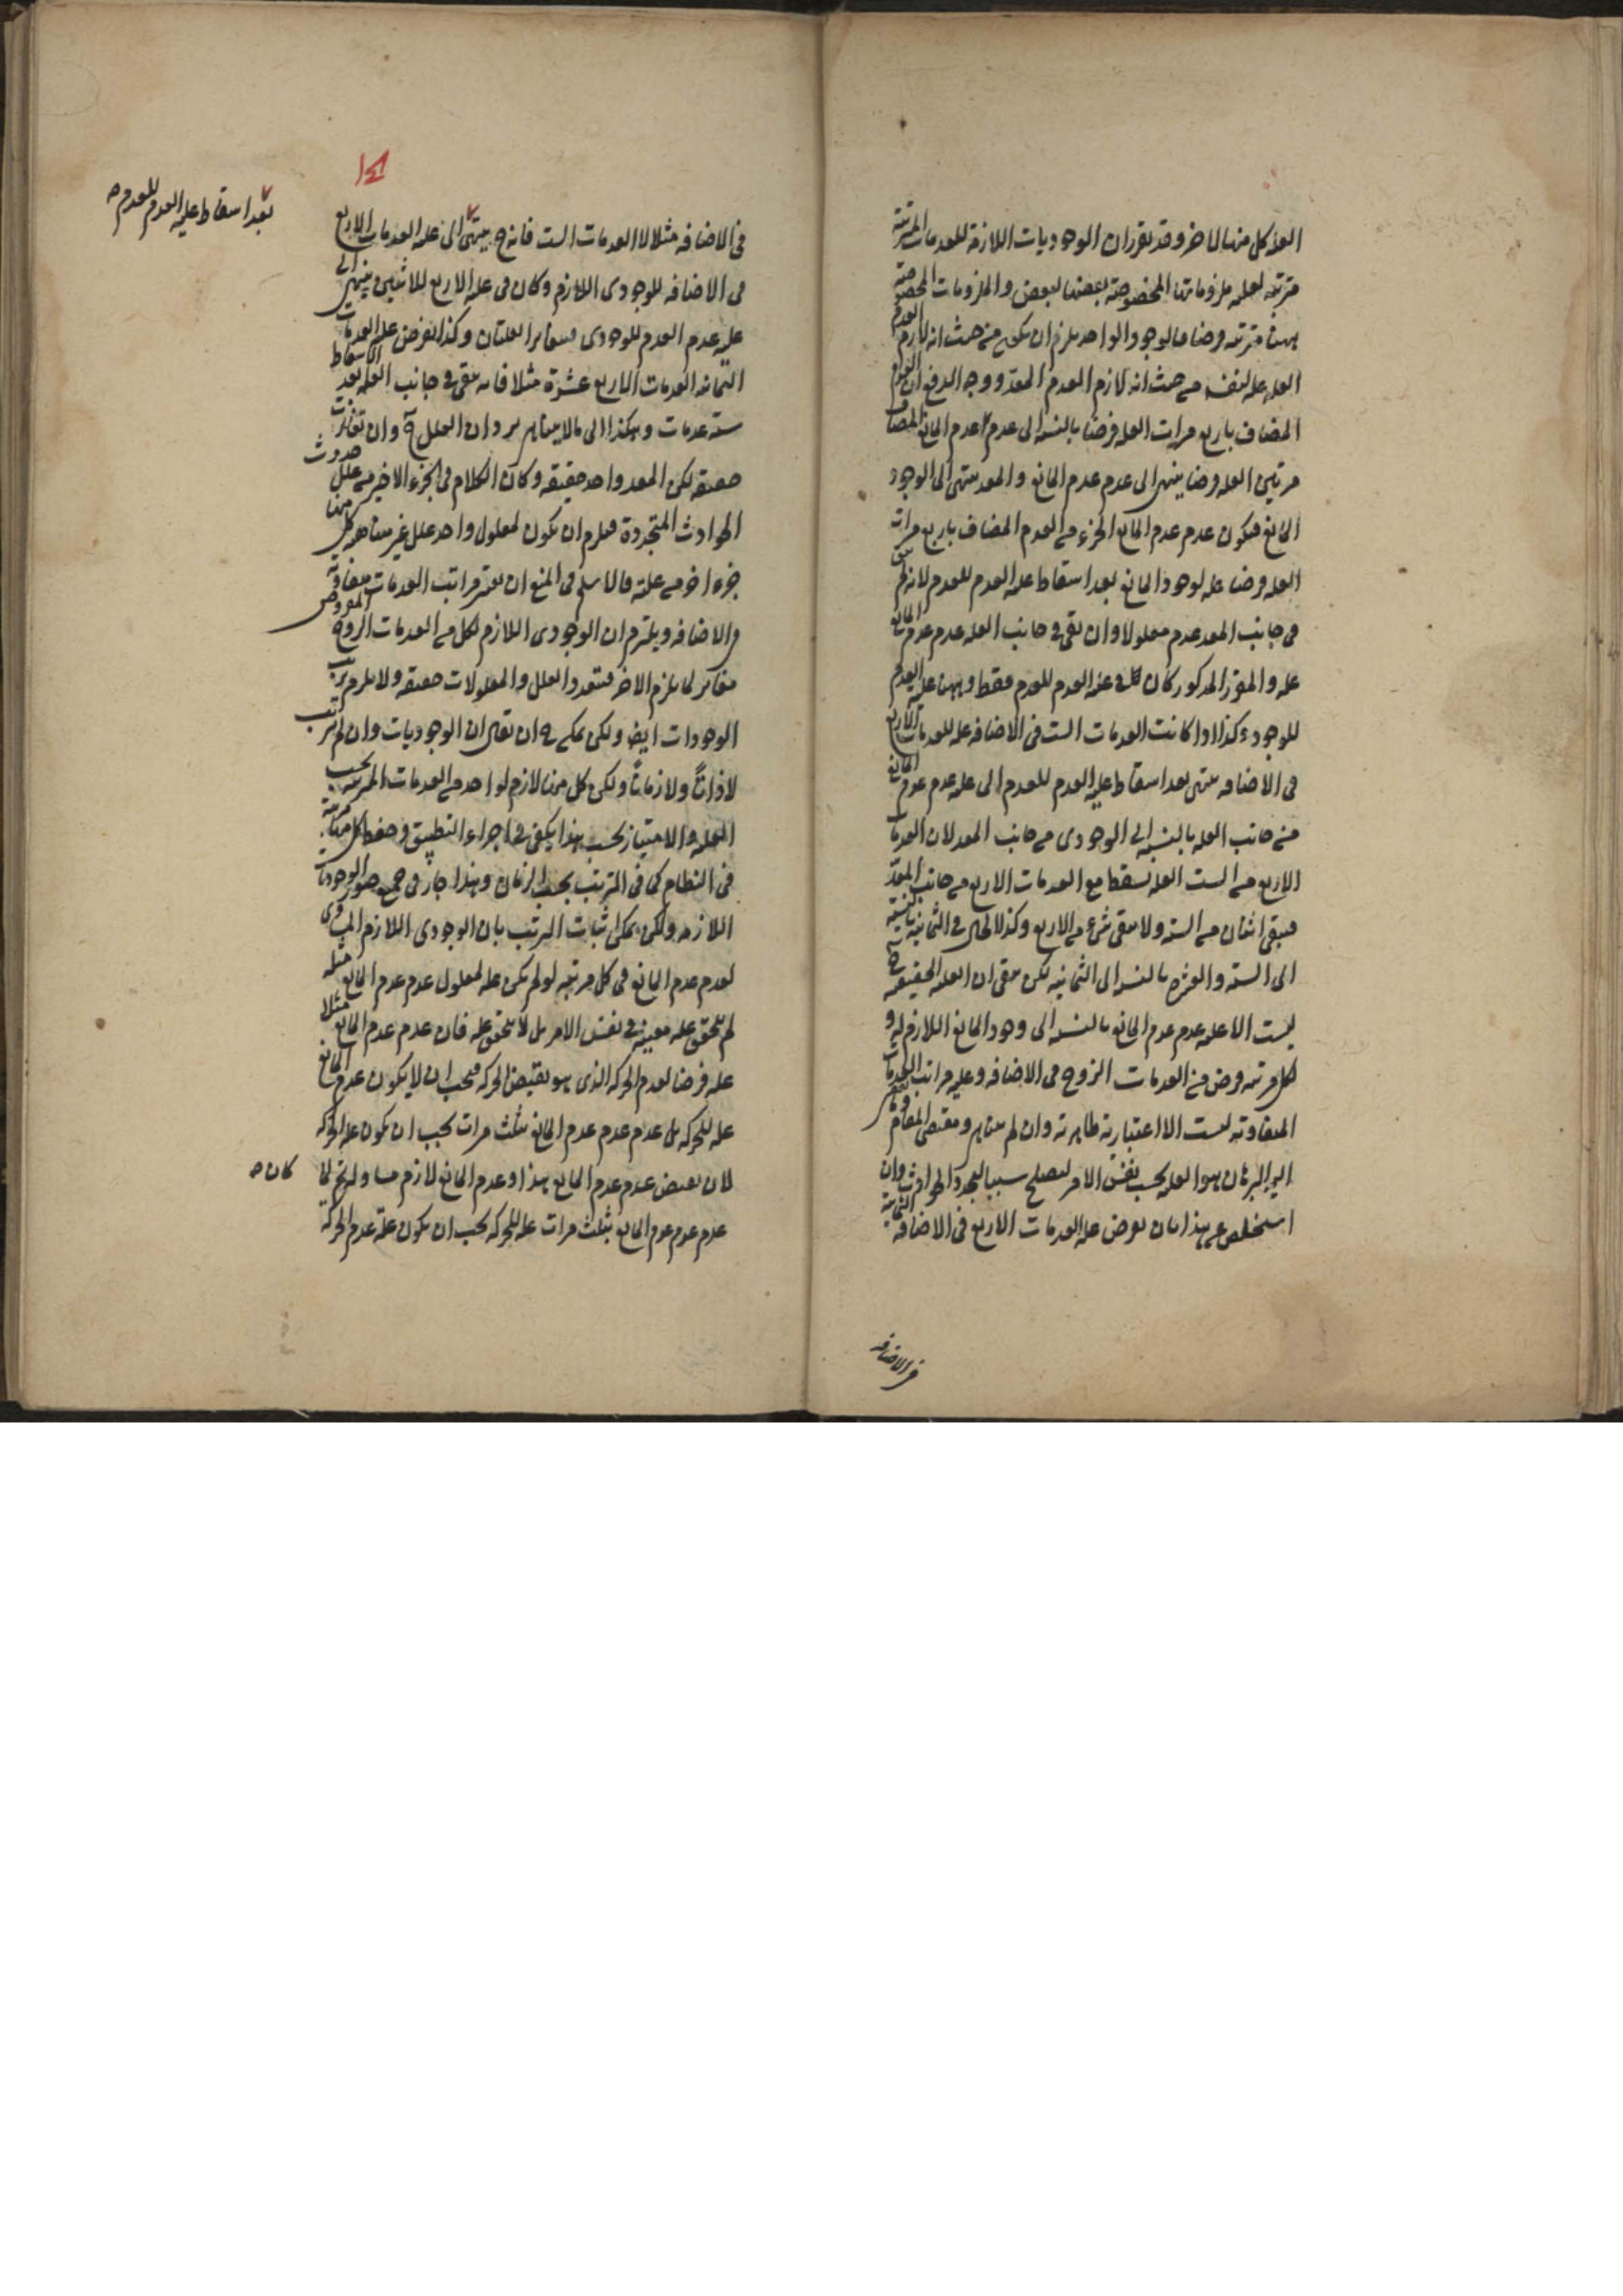 العلة كل منها للاخر وقد تقرر ان الوجوديات اللازمة للعدمات المرتبة
مترتبة لعلية ملزوماتها المخصوصة بعضها لبعض والملزومات المخصوصة
ههنا مترتبة فرضا فالوجود الواحد يلزم ان يكون من حيث انه لازم العدم
العلة علة لنفسه من حيث انه لازم العدم المعد ووجه الدفع ان العدم
المضاف باربع مرات العلة فرضا بالنسبة الى عدم عدم المانع المضاف
مرتين العلة فرضا ينتهي الى عدم عدم المانع والمعد ينتهي الى الوجود
المانع فيكون عدم عدم المانع الجزء من العدم المضاف باربع مرات
العلة فرضا علة لوجود المانع بعد اسقاط علة العدم للعدم لانه لم يبق
في جانب المعد عدم معلولا وان بقي في جانب العلة عدم عدم المانع
علة والمقرر المذكور كان كل في علة العدم للعدم فقط وههنا علة العدم
للوجود وكذا اذا كانت العدمات الست في الاضافة علة للعدمات الاربع
في الاضافة ينتهي بعد اسقاط علية العدم للعدم الى علة عدم عدم المانع
من جانب العلة بالنسبة الى الوجودي من جانب المعد لان العدمات
الاربع من الست العلة يسقط مع العدمات الاربع من جانب المعد
فيبقى اثنان من الستة ولا يبقى شيء من الاربع وكذا الحال في الثمانية بالنسبة
الى الستة والعشرة بالنسبة الى الثمانية لكن يبقى ان العلة الحقيقية ح
ليست الا علة عدم عدم المانع بالنسبة الى وجود المانع اللازم له و
لكل مرتبة فرض من العدمات الزوج في الاضافة وعلية مراتب العدمات
المتفاوتة ليست الا اعتبارية ظاهرية وان لم يتناهى ومقتضى المقام
البرهان هو العلة بحسب نفس الامر ليصلح سببا لتجدد الحوادث وان
استخلص عن هذا بان يعرض علة العدمات الاربع في الاضافة الثمانية
في الاضافة
في الاضافة مثلا لا العدمات الست فانه ح ينتهي الى علة العدمات الاربع
بعد اسقاط علية العدم للعدم صح
في الاضافة للوجودي اللازم وكان في علة الاربع للاثنين ينتهي الى
علة عدم العدم للوجودي فيتغاير العلتان وكذا يفرض علة العدمات
الثمانية العدمات الاربع عشرة مثلا فانه يبقى في جانب العلة بعد الاسقاط
ستة عدمات وهكذا الى ما لا يتناهى يرد ان العلل ح وان تغايرت
حقيقة لكن المعد واحد حقيقة وكان الكلام في الجزء الاخير من علل حدوث
الحوادث المتجددة فيلزم ان يكون لمعلول واحد علل غير متناهية كل منها
جزء اخر من علته فالاسلم في المنع ان يعتبر مراتب العدمات متفاوتة
في الاضافة ويلتزم ان الوجودي اللازم لكل من العدمات الزوج المفروض
مغاير لما يلزم الاخر فيتعدد العلل والمعلولات حقيقة ولا يلزم ترتب
الوجودات ايضا ولكن يمكن ح ان يقال ان الوجوديات وان لم يترتب
لا ذاتا ولا زمانا ولكن كل منها لازم لواحد من العدمات المرتبة بحسب
العلة والامتياز بحسب هذا يكفي في اجراء التطبيق وحفظ كل مرتبة
في النظام كما في الترتب بحسب الزمان وهذا جاز في جميع صور الوجوديات
اللازمة ولكن يمكن اثبات الترتب بان الوجودي اللازم المساوي
لعدم عدم المانع في كل مرتبة لو لم يكن علة لمعلول عدم عدم المانع مثله
لم يتحقق علة معينة في نفس الامر بل لا يتحقق علة فان عدم عدم المانع مثلا
علة فرضا لعدم الحركة الذي هو نقيض الحركة فيجب ان لا يكون عدم المانع
علة للحركة بل عدم عدم عدم المانع بثلث مرات يجب ان يكون علة الحركة
لان نقيض عدم عدم المانع هذا وعدم المانع لازم مساو له ثم لما كان صح
عدم عدم عدم المانع بثلث مرات علة للحركة يجب ان يكون علة عدم الحركة